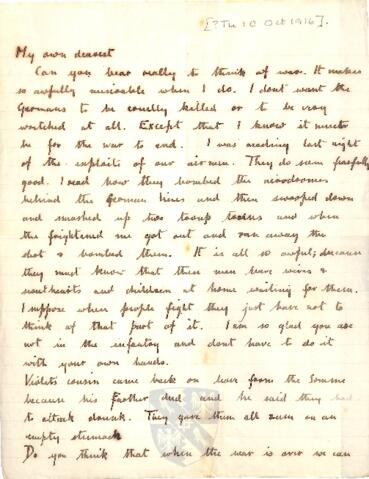 [?Tu 10 Oct 1916].
My own dearest
Can you bear really to think of war. It makes
so awfully miserable when I do. I dont want the
Germans to be cruelly killed or to be very
wretched at all. Except that I know it must
be for the war to end. I was reading last night
of the exploits of our airmen. They do seem fearfully
good. I read how they bombed the aerodromes
behind the German lines and then swooped down
and smashed up two troop trains and when
the frightened men got out and ran away the
shot & bombed them. It is all so awful, because
they must know that these men have wives &
sweethearts and children at home waiting for them.
I suppose when people fight they just have not to
think of that part of it. I am so glad you are
not in the infantry and dont have to do it
with your own hands.
Violets cousin came back on leave from the Somme
because his father died and he said they had
to attack drunk. They gave them all rum on an
empty stomach
Do you think that when the war is over we can